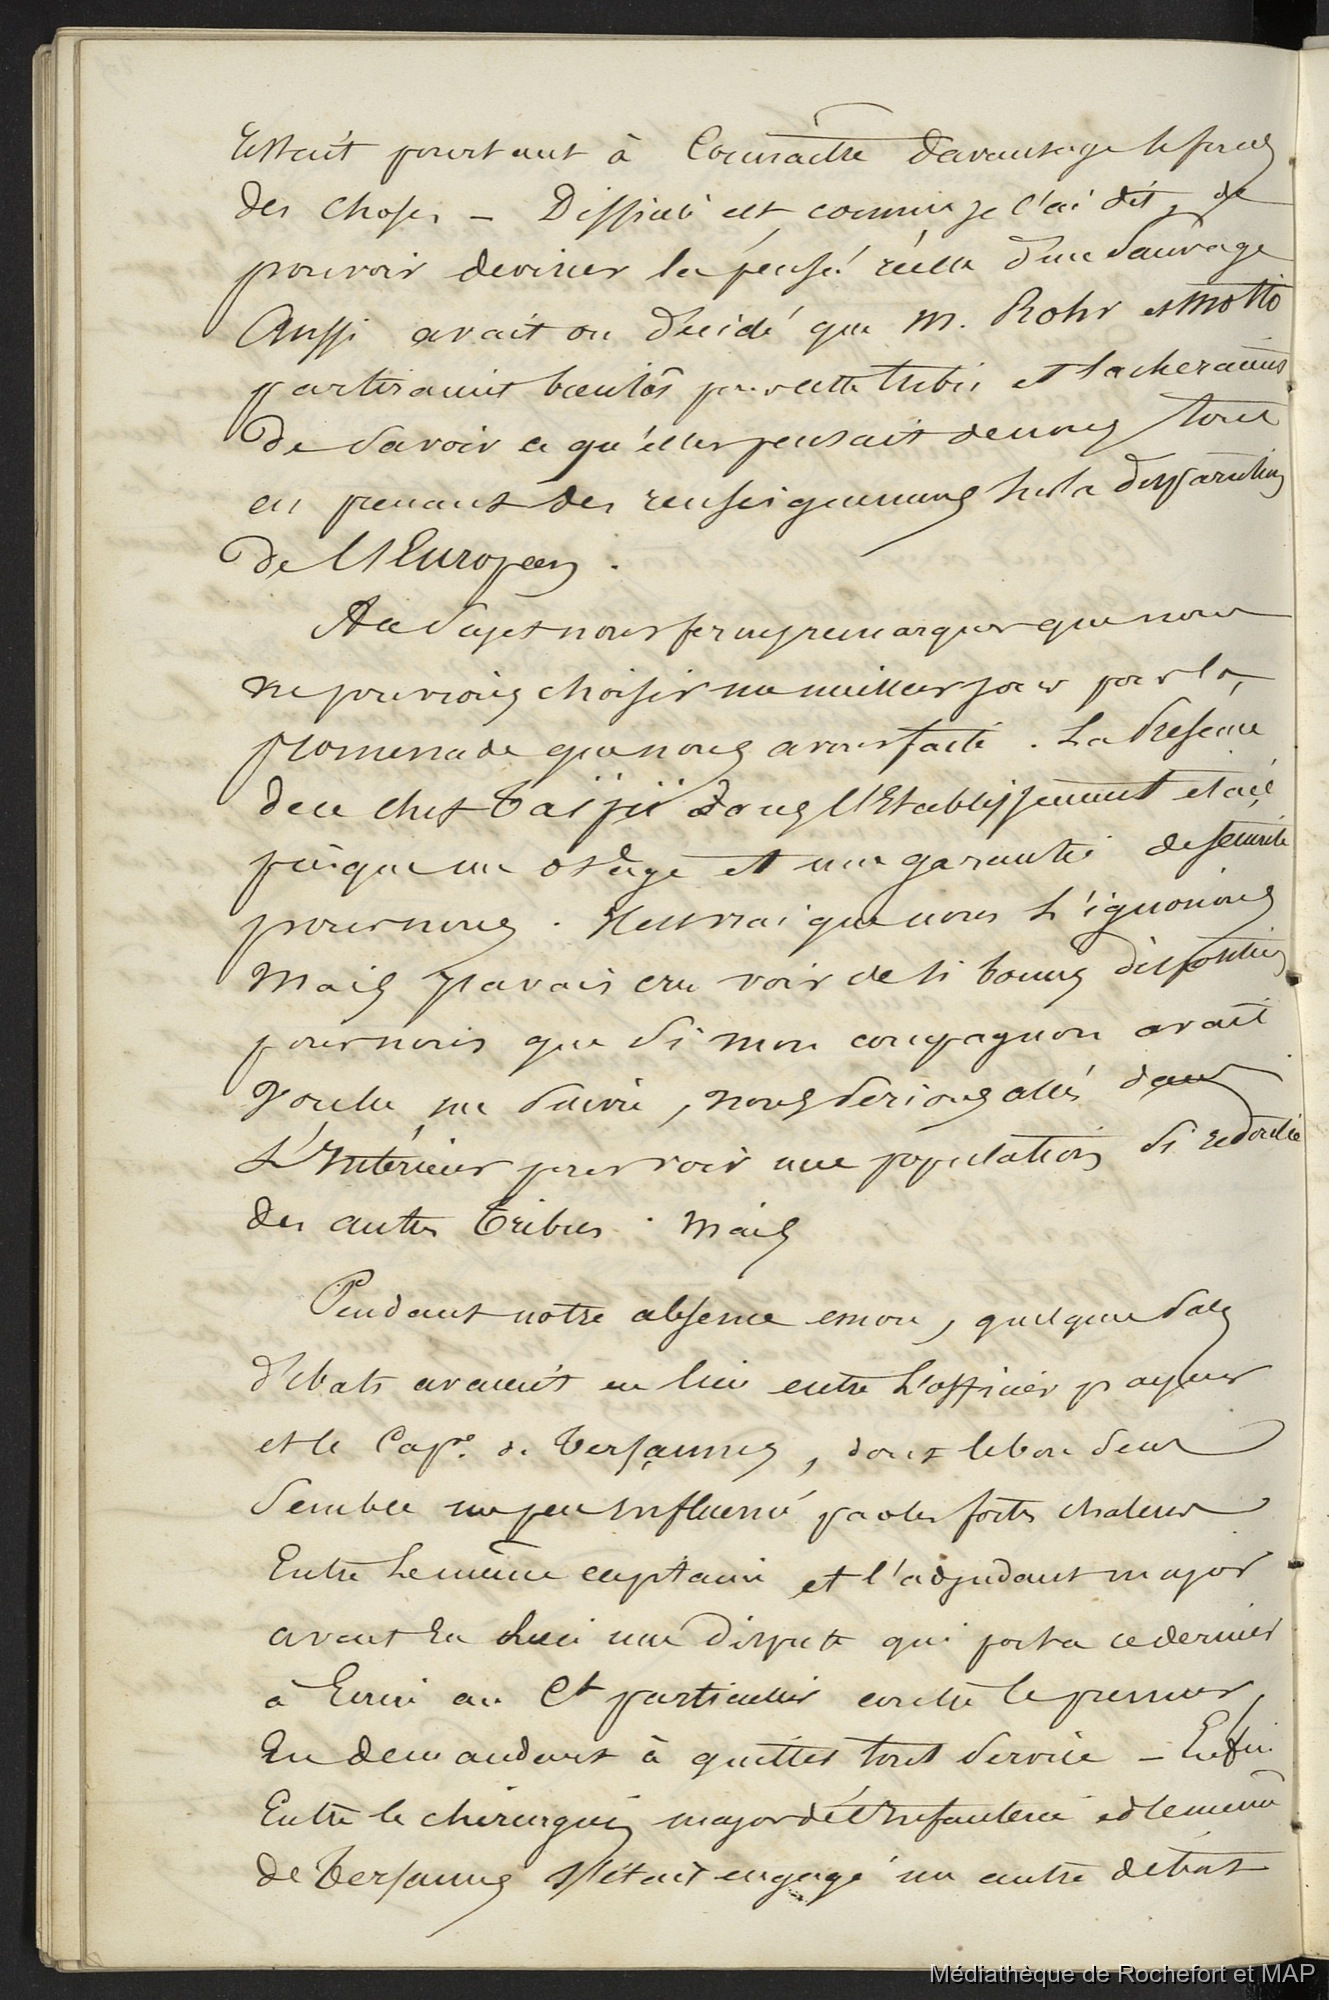 Restait pourtant à Connaitre davantage le fond
des choses – Difficile est, comme je l'ai dit, de
pouvoir deviner la pensé réelle d'un Sauvage
Aussi avait on décidé que M. Rohr et Motto
partiraient bientôt pour cette tribu et tacheraient
de Savoir ce qu'elles pensait de nous tout
en prenant des renseignements sur la disparution
de l'Européen.
A ce Sujet nous fermes remarquer que nous
ne pouvions choisir un meilleur jour pour la
promenade que nous avons faite. La Présence
de ce chef Taïpii dans l'Etablissement etait
puisque un otage et une garantie de sécurité
pour nous. Il est vrai que nous l'ignorions
Mais j'avais cru voir de si bonnes dispositions
pour nous que si mon compagnon avait
voulu me suivre, nous serions allés dans
L'Intérieur pour voir une population si redoutée
des autres Tribus. Mais
Pendant notre absence encore, quelques sales
débats avaient eu lieu entre L'officier payeur
et le Capne de Tersannes, dont le bon sens
semble un peu influencé par les fortes chaleurs
Entre le même capitaine et l'adjudant major
avait eu lieu une dispute qui porta ce dernier
à Ecrire au Ct particulier contre le premier,
En demandant à quitter tout Service – Enfin
Entre le chirurgien major de l'Infanterie et le même
de Tersannes s'était engagé un autre débat
Médiathèque de Rochefort et MAP